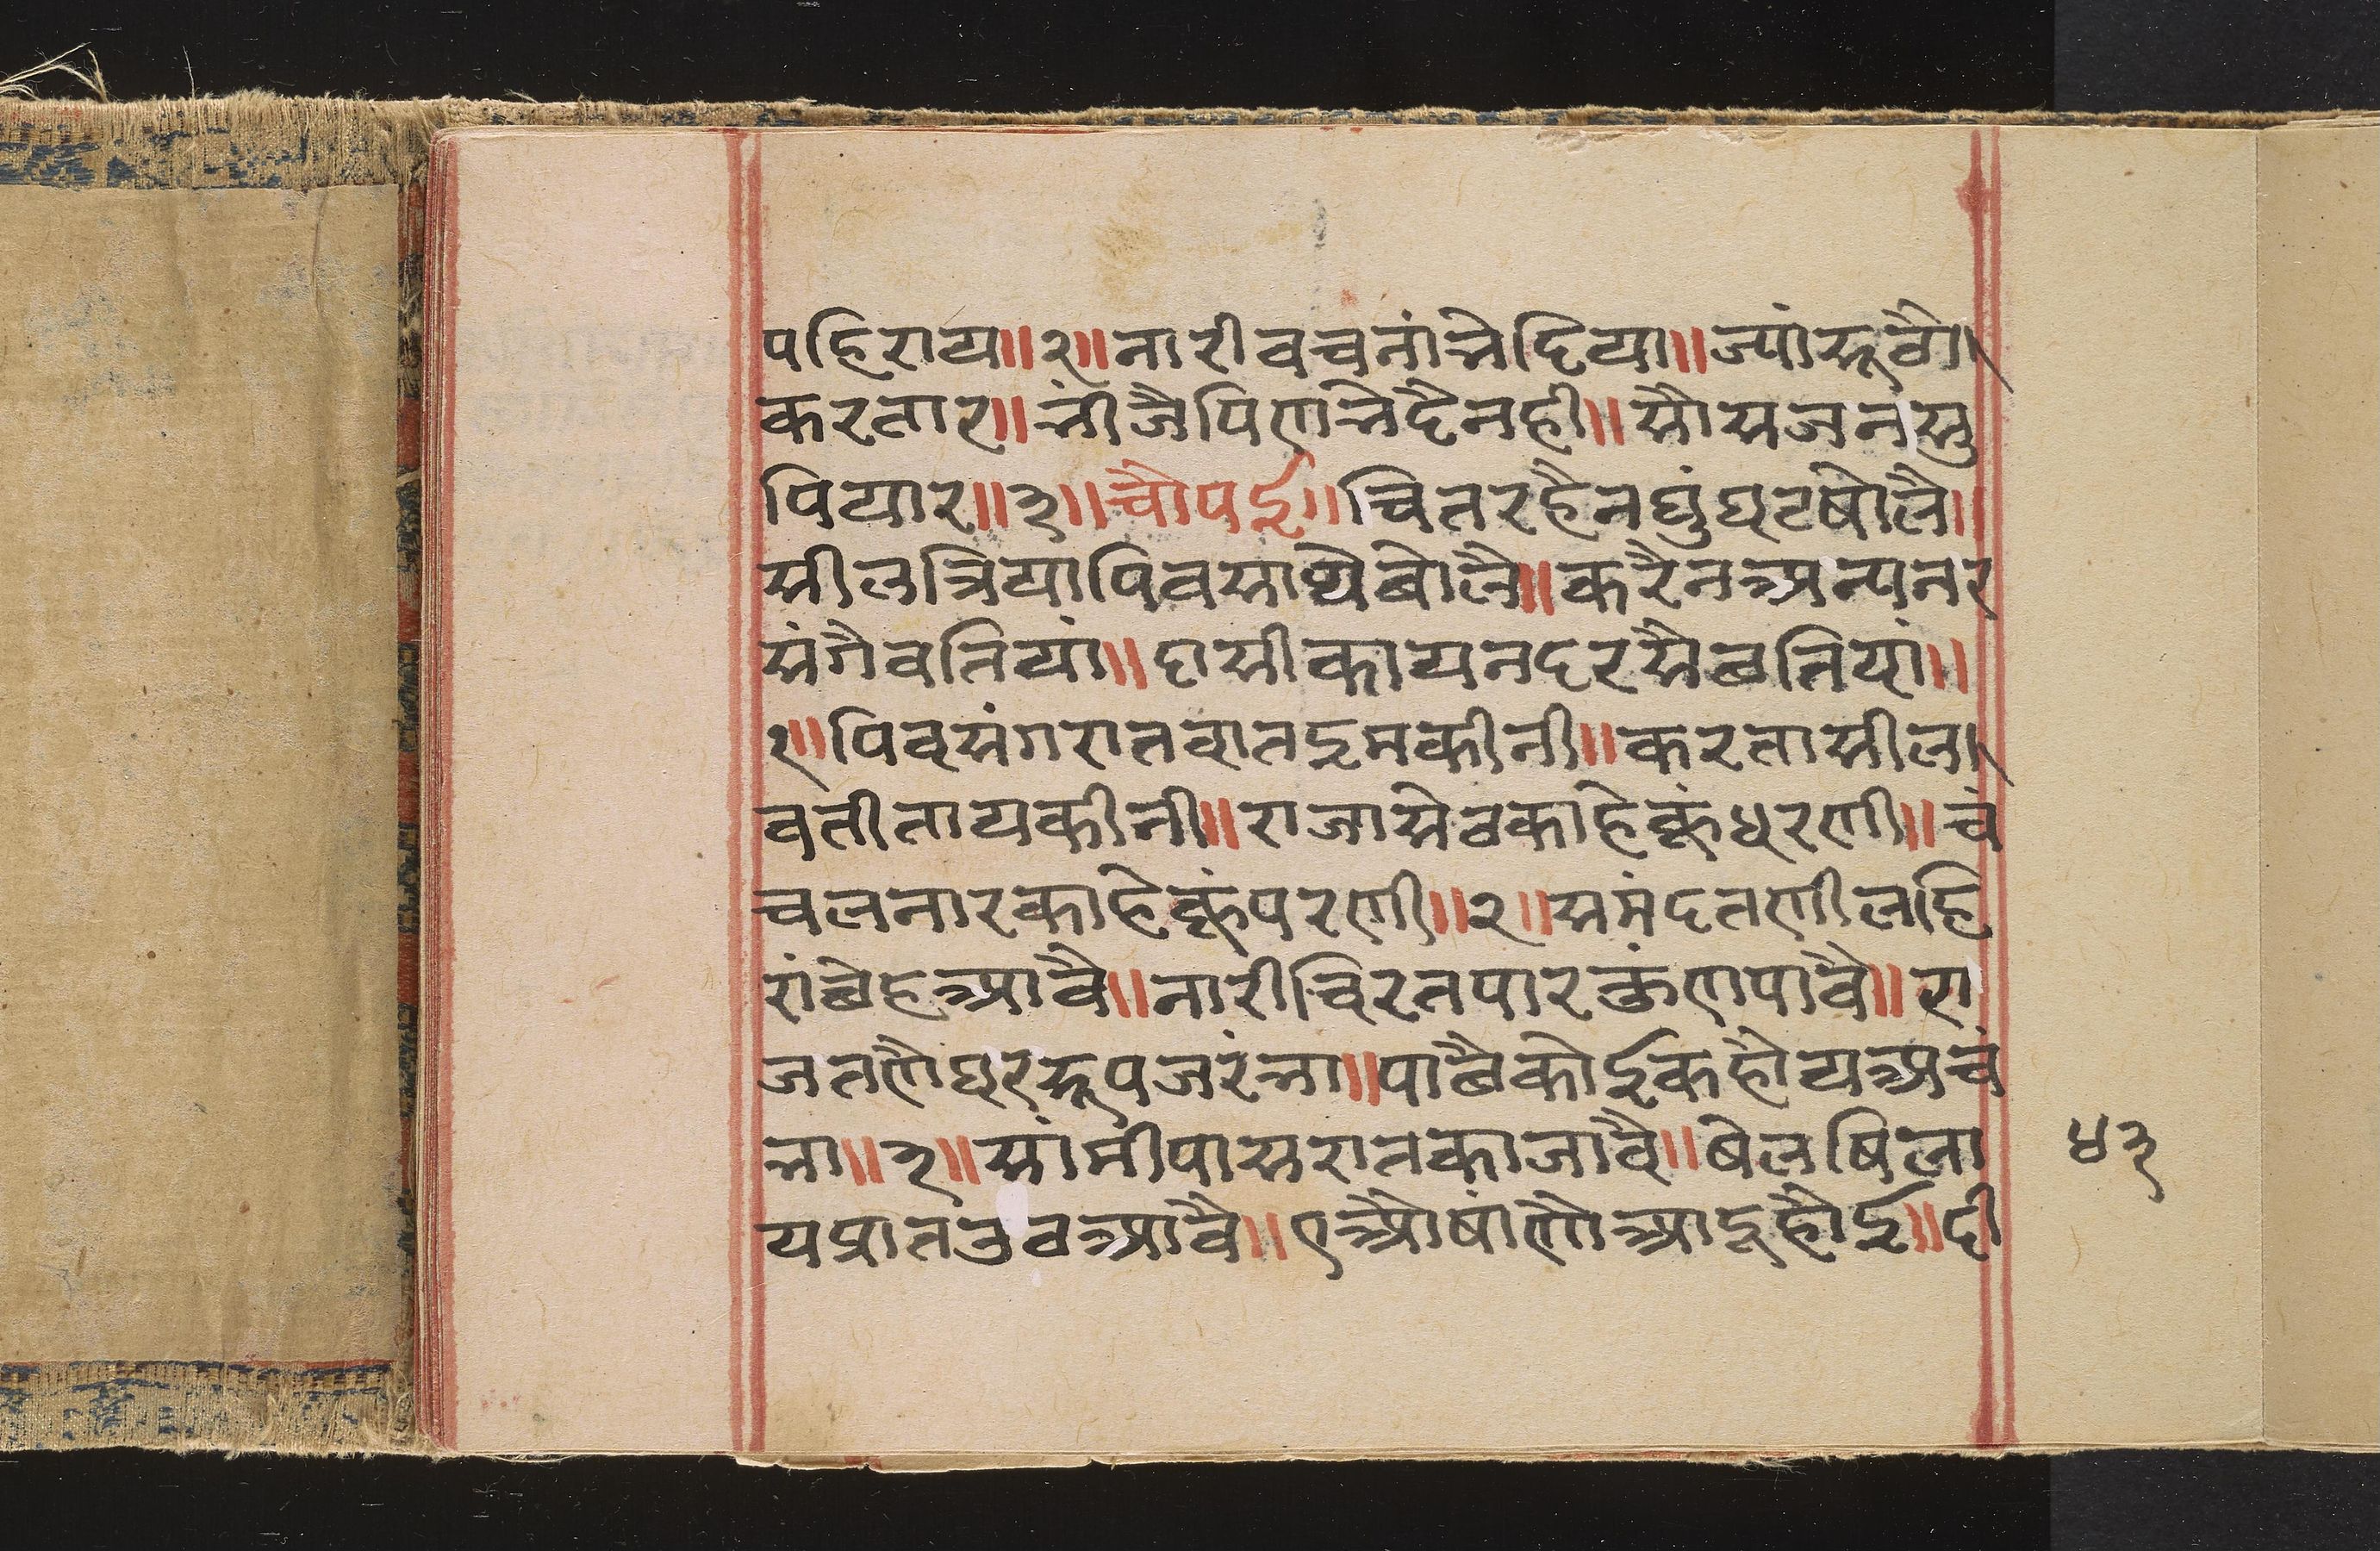 पहिराय॥२॥नारीवचनांनेदिया॥ज्यांसूवौ।
करतार॥नीजैपिणनेदैनही॥सौसजनंसु
पियार॥३॥चौपई॥चितरहैनघुंघटषोलै॥
सीलत्रियापिवसाथेबोलै॥करैनअन्यनर
संगैवतियां॥दासीकायनदरसैबतियां॥
१॥पिवसंगरातवातइमकीनी॥करतासील।
वतीतायकीनी॥राजासेवकाहेकूंधरणी॥चं
चलनारकाहेकूंपरणी॥२॥समंदतणीलहि
रांबेहआवै॥नारीचिरतपारकुंणपावै॥रा
जतणैघरसूपजरंना॥पाबैकोईकहौयअचं
ना॥३॥सांमीपासरातकाजावै॥बेलषिला
यप्रातउवआवै॥एऔषांणौआदूहौई॥दी
४३